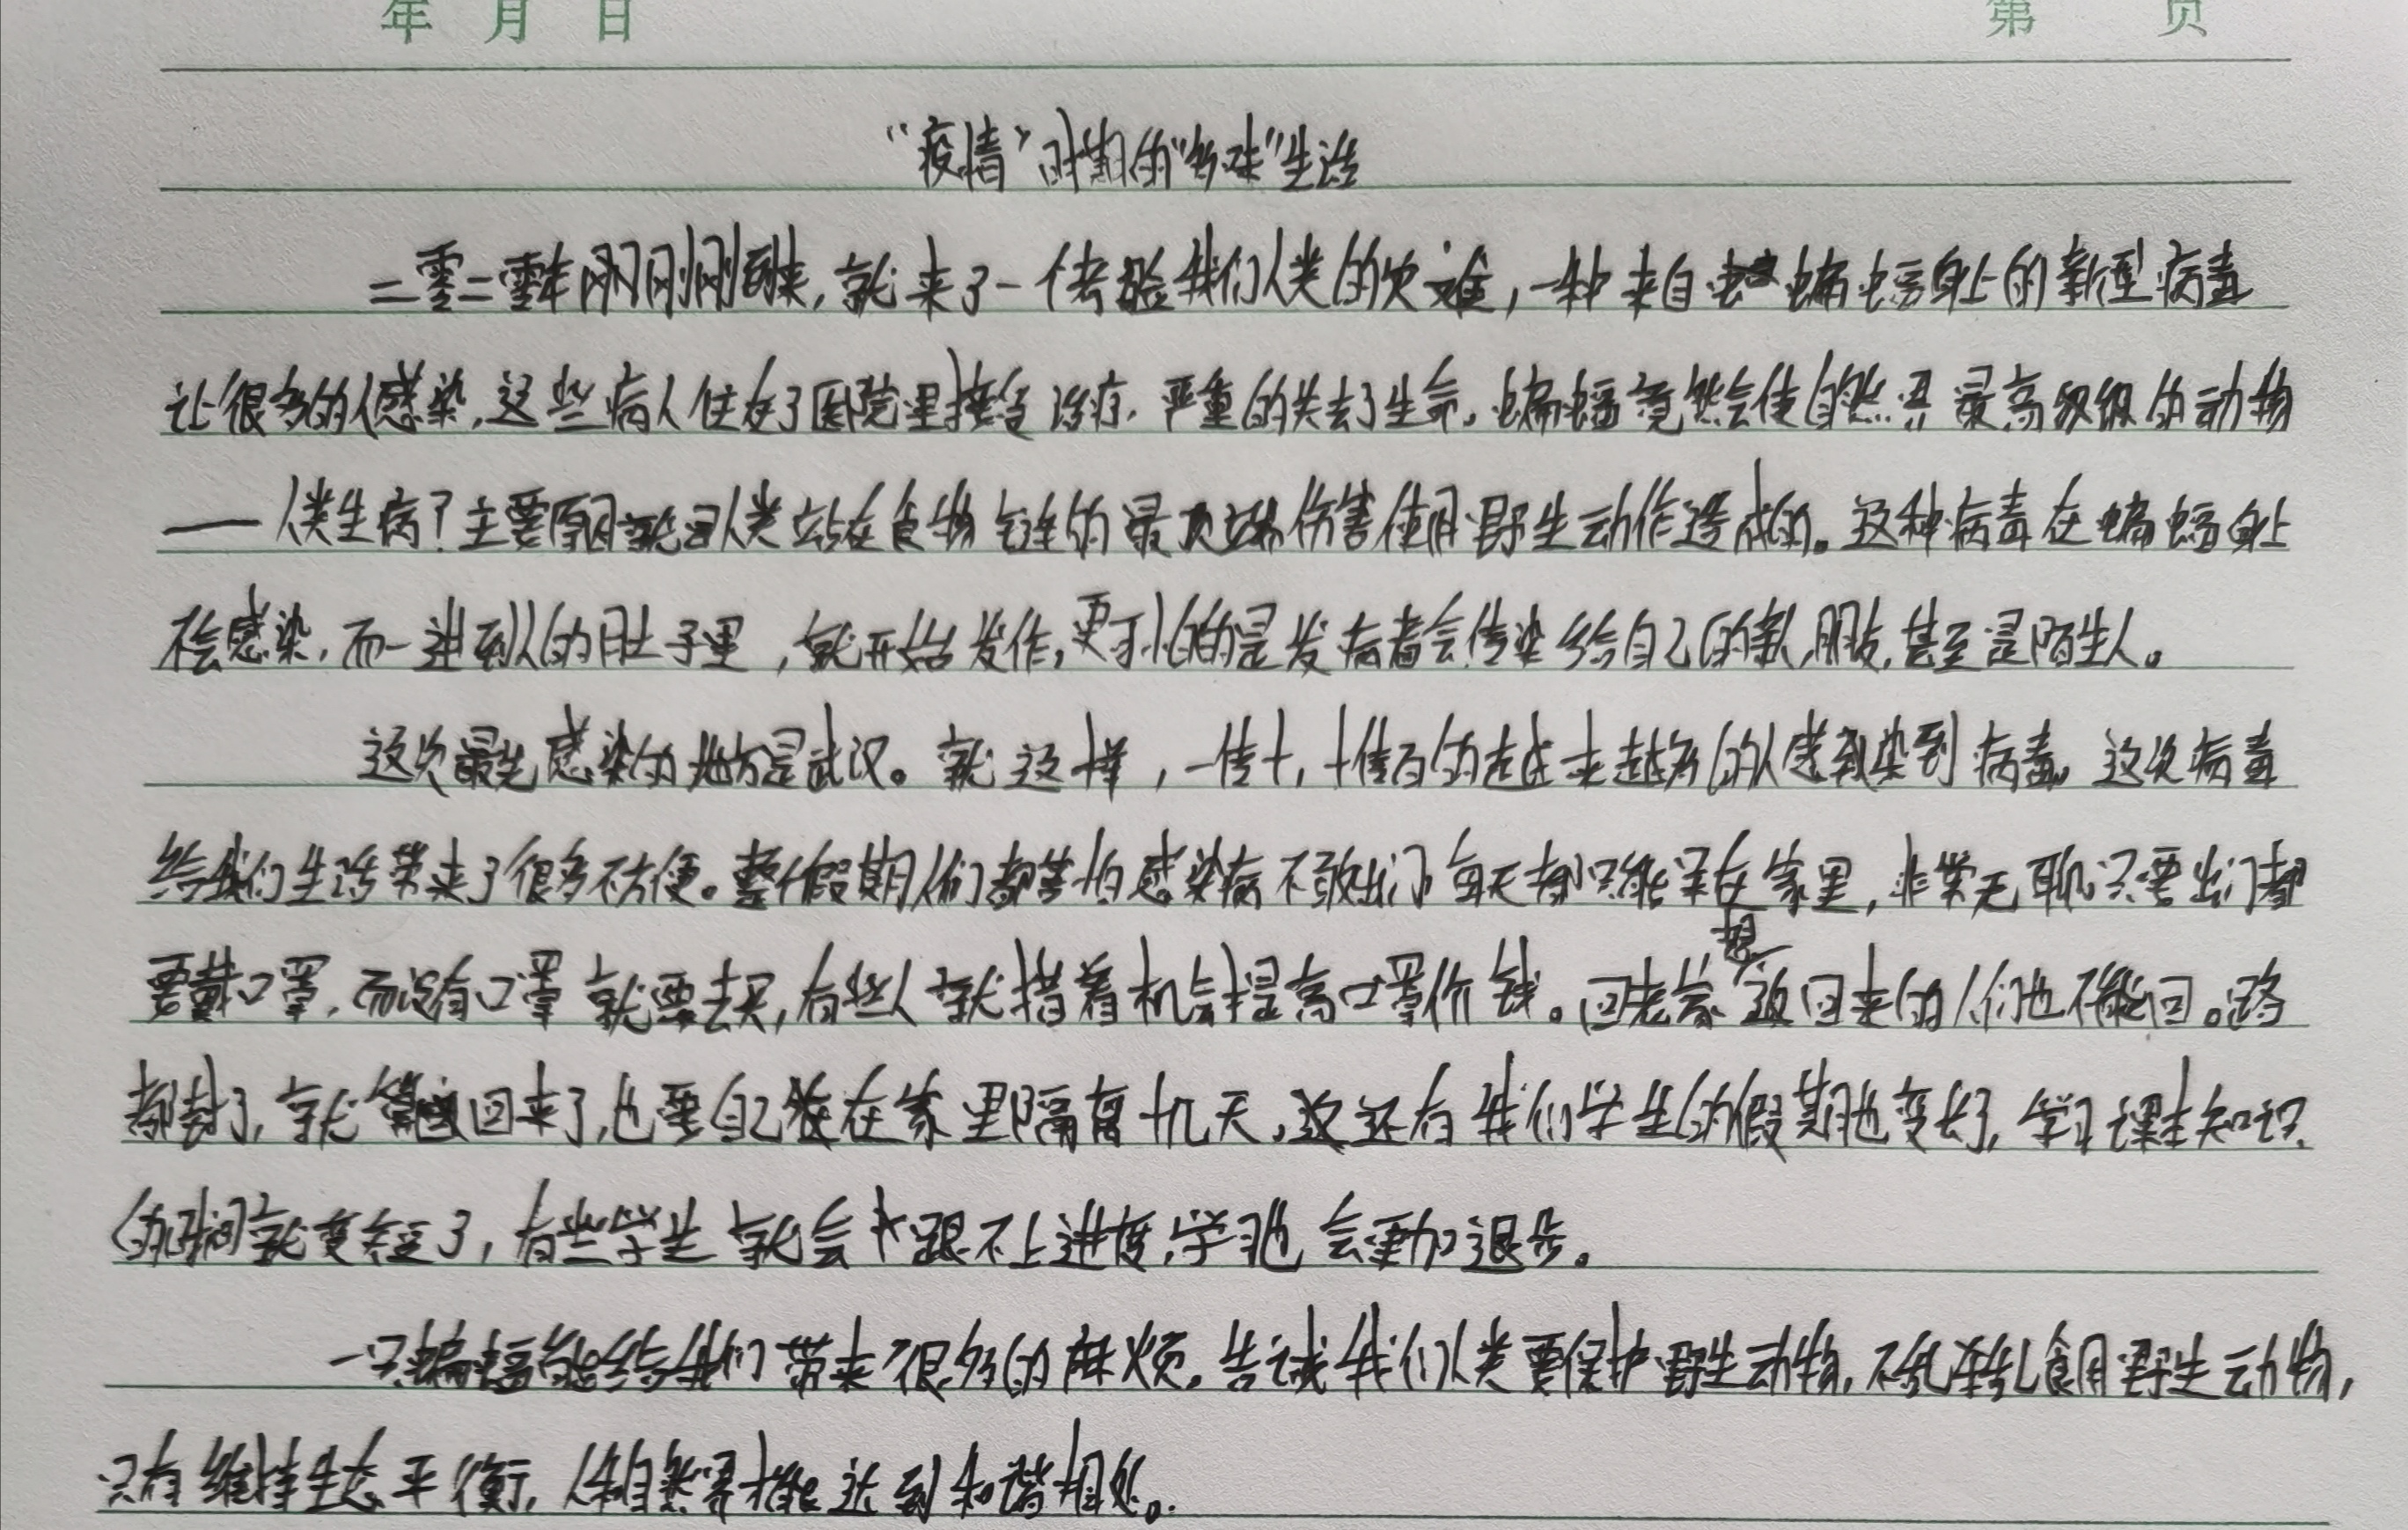 年 月 日 第 页
“疫情”时期的“特殊”生活
二零二零年刚刚到来,就来了一个考验我们人类的灾难,一种来自蝙蝠身上的新型病毒
让很多的人感染,这些病人住在了医院里接受治疗,严重的失去了生命。蝙蝠竟然会使自然界最高级的动物
——人类生病?主要原因就是人类站在食物链的最顶端伤害使用野生动作造成的。这种病毒在蝙蝠身上
不会感染,而一进到人的肚子里,就开始发作,更可怕的是发病者会传染给自己的亲人,朋友,甚至是陌生人。
这次最先感染的地方是武汉。就这样,一传十,十传百的越来越多的人感染到病毒。这次病毒
给我们生活带来了很多不方便。整个假期人们都害怕感染病不敢出门每天都只能呆在家里,非常无聊只要出门都
要戴口罩,而没有口罩就要去买,有些人就指着机会提高口罩价钱。回老家想返回来的人们也不能回。路
都封了,就算回来了,也要自己在家里隔离十几天,这还有我们学生的假期也变长了,学习课本知识
的时间就变短了,有些学生就会跟不上进度,学习也会更加退步。
一只蝙蝠能给我们带来了很多的麻烦。告诫我们人类要保护野生动物,不乱食用野生动物,
只有维持生态平衡,人和自然界才能达到和谐相处。